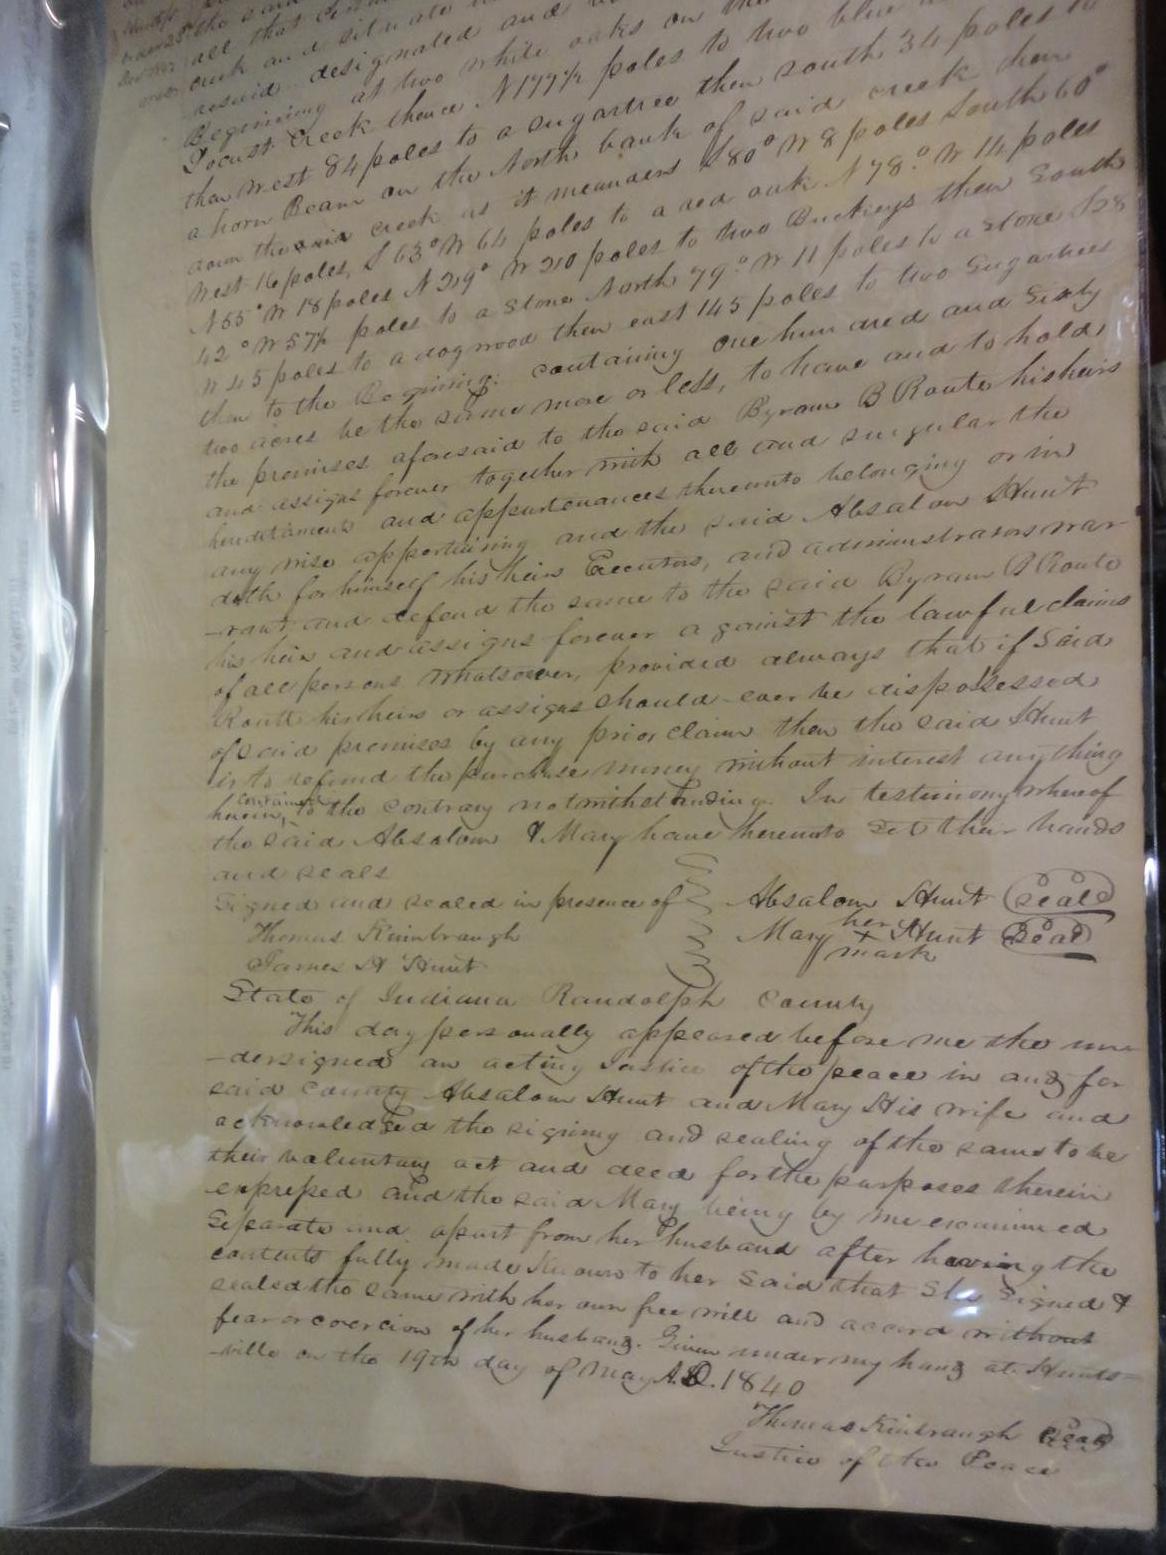 all that
and situate
designated and
Beginning at two white oaks on the
Locust Creek thence N 177½ poles to two blue
then West 84 poles to a sugartree then south 34 poles to
a horn Beam on the North bank of said creek then
down the said creek as it meanders S 80° W 8 poles South 60°
West 16 poles, S 63° W 64 poles to a red oak N 78° W 14 poles
N 55° W 18 poles N 29° W 20 poles to two Buckeys then South
42° W 57½ poles to a Stone North 79° W 11 poles to a Stone
W 45 poles to a dogwood then east 145 poles to two Sugartrees
then to the Beginning: containing one hundred and Sixty
two acres be the same more or less, to have and to hold
the premises aforesaid to the said Byram B Routh his heirs
and assigns forever together with all and singular the
hereditaments and appurtenances thereunto belonging or in
any wise appertaining and the said Absalom Hunt
doth for himself his heirs Executors, and administrators war-
-rant and defend the same to the said Byram B Routh
his heirs and assigns forever against the lawful claims
of all persons whatsoever, provided always that if Said
Routh his heirs or assigns should ever be dispossessed
of said premises by any prior claim then the said Hunt
is to refund the purchase money without interest anything
herein, contained to the contrary notwithstanding. In testimony whereof
the said Absalom & Mary have hereunto Set their hands
and seals
Signed and sealed in presence of Absalom Hunt Seal
Thomas Kimbraugh Mary her X mark Hunt Seal
James H Hunt
State of Indiana Randolph County
This day personally appeared before me the un-
-dersigned an acting Justice of the peace in and for
said County Absalom Hunt and Mary His wife and
acknowledged the signing and sealing of the same to be
their voluntary act and deed for the purposes therein
expressed and the said Mary being by me examined
Separate and apart from her husband after having the
contents fully made Known to her Said that She Signed &
sealed the same with her own free will and accord without
fear or coercion of her husband. Given under my hand at Hunts-
-ville on the 19th day of May A.D. 1840
Thomas Kimbraugh Seal
Justice of the Peace